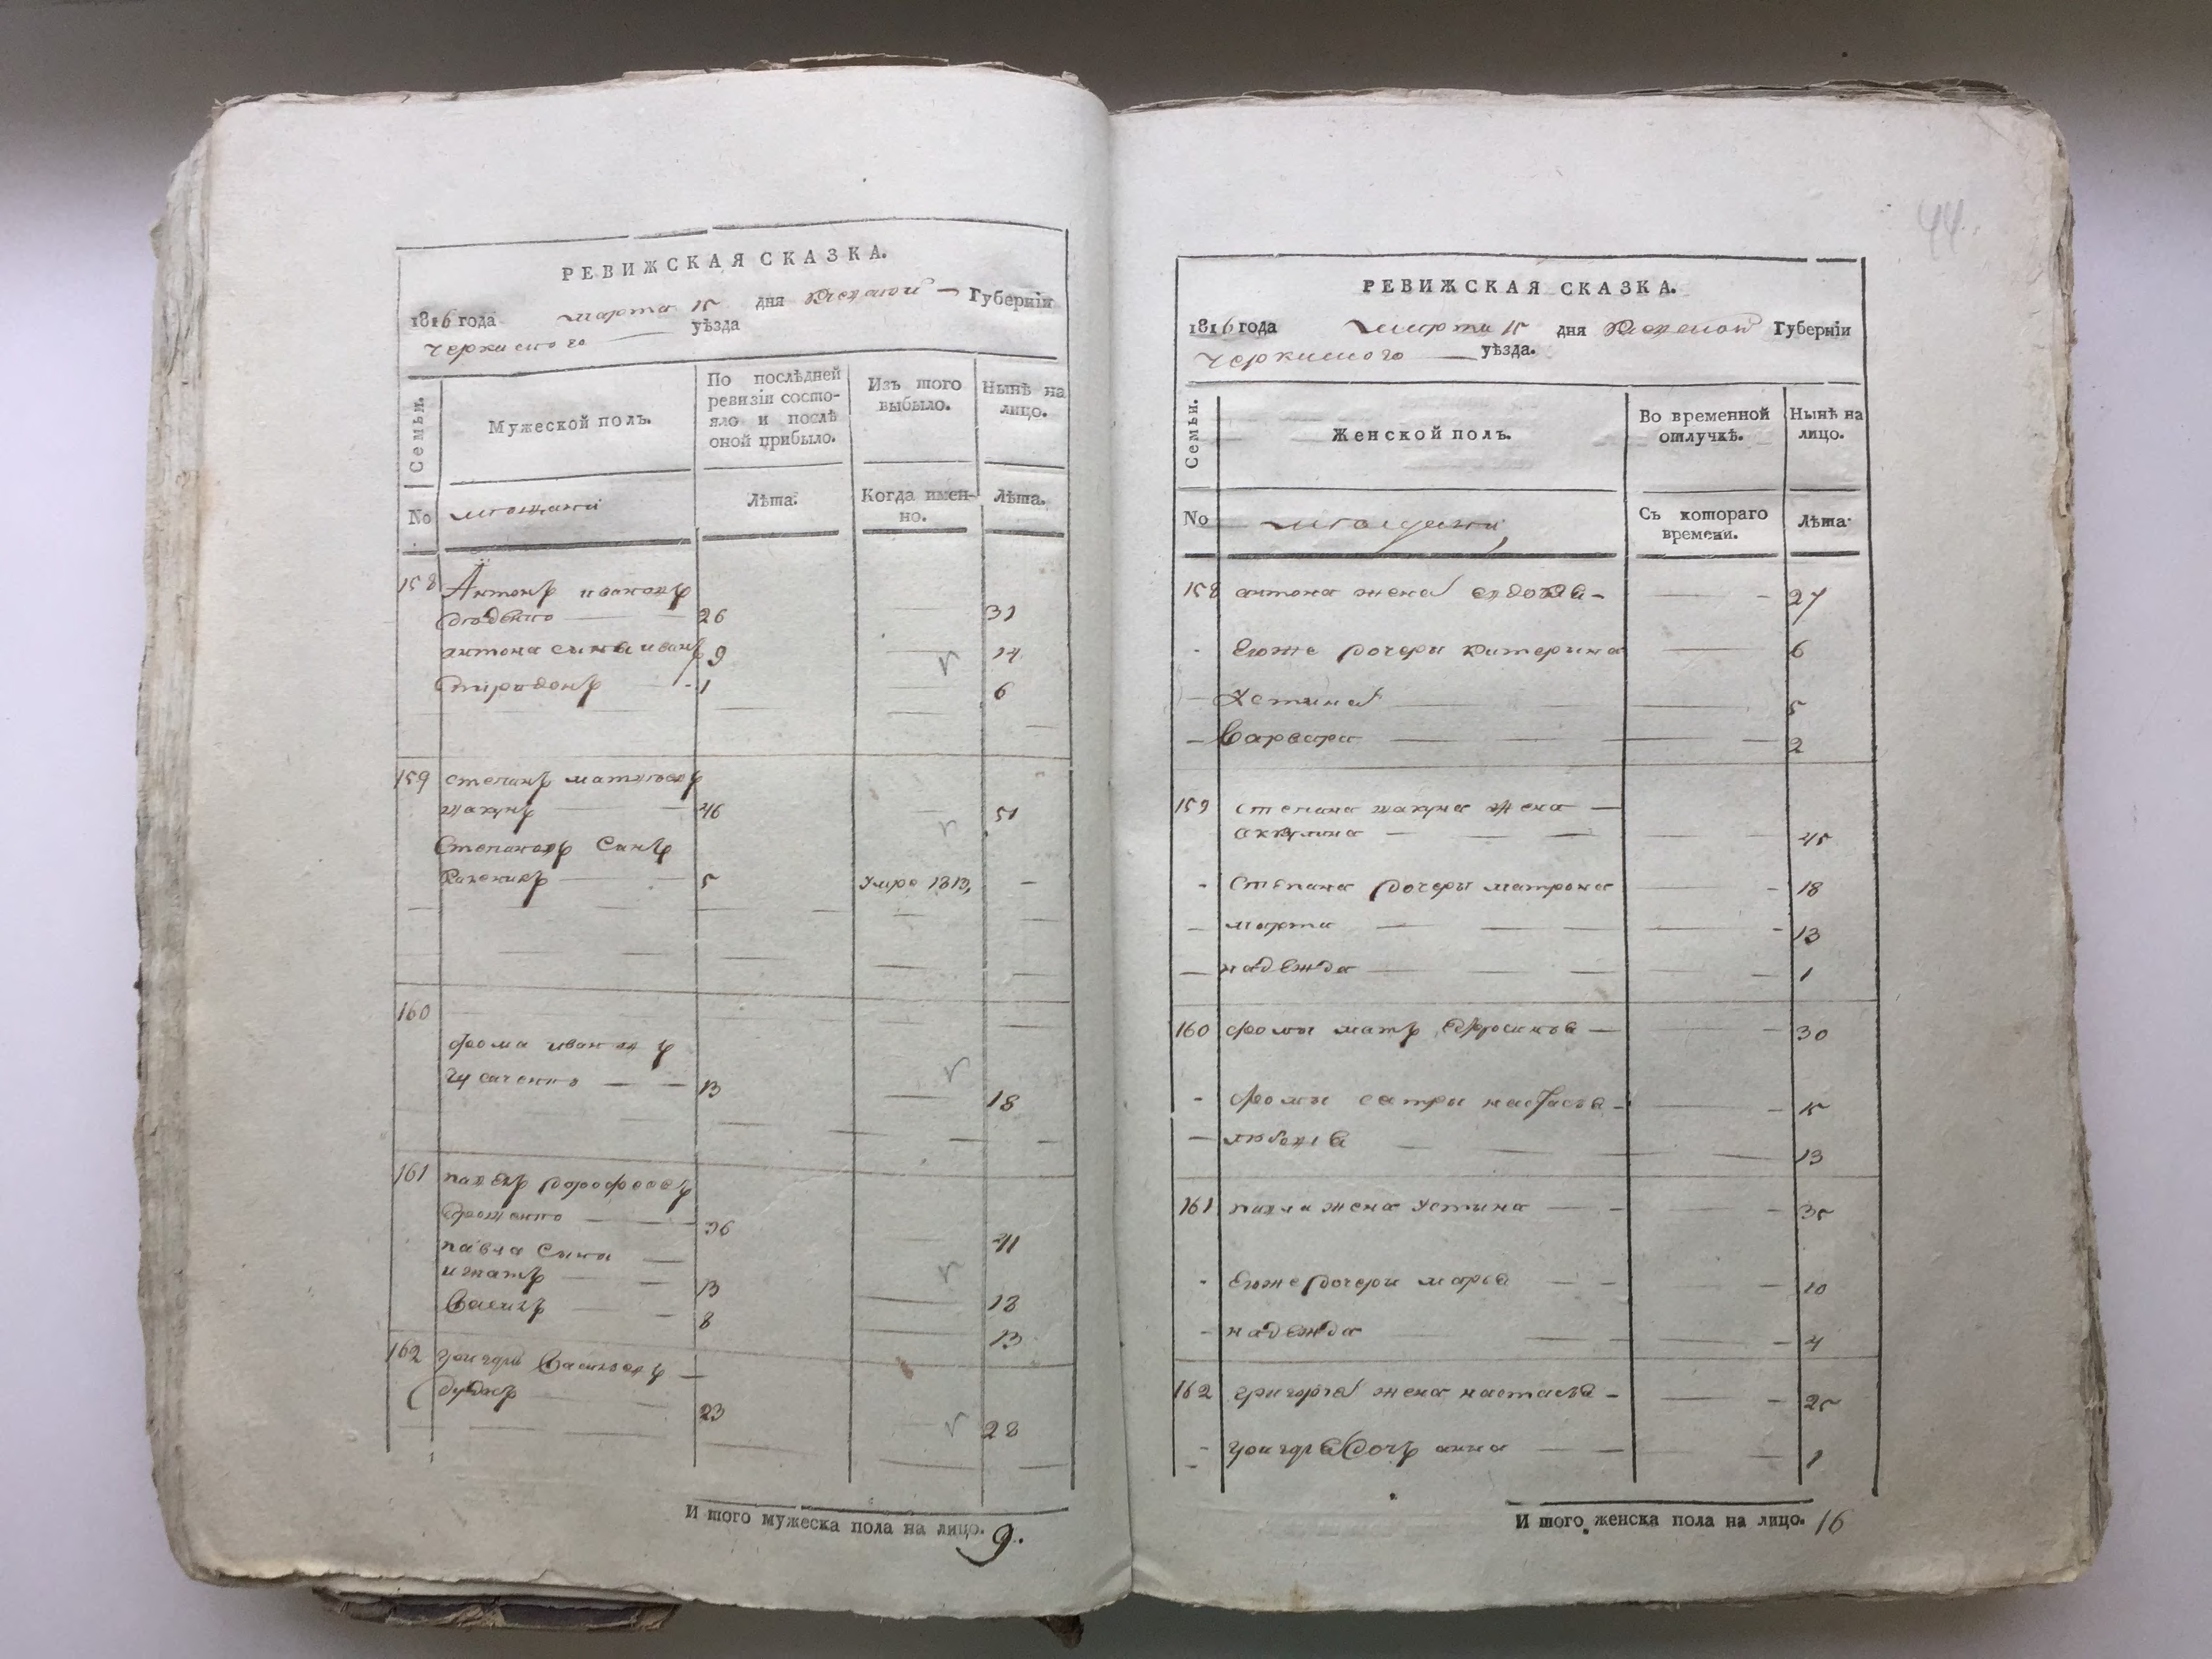 РЕВИЖСКАЯ СКАЗКА.
1816 года марта 15 дня Киевской Губерніи
черкаского уѣзда
Семьи.
Мужеской полъ.
По послѣдней
ревизіи состо-
яло и послѣ
оной прибыло.
Изъ того
выбыло.
Нынѣ на
лицо.
No мещани
Лѣта.
Когда имен-
но.
Лѣта.
158 Антонъ ивановъ
26 31
антона сына иванъ 9 14
спиридонъ 1 6
159 степанъ матвѣевъ
жакунъ 46 51
Степановъ Синъ
5 Умре 1813,
160
фома ивановъ
13 18
161 павелъ дорофеевъ
36 41
павла Сына
игнатъ 13 18
Василъ 8 13
162 григори Василевъ
дудка 23 28
И того мужеска пола на лицо. 9.
44.
РЕВИЖСКАЯ СКАЗКА.
1816 года марта 15 дня Киевской Губерніи
черкаского уѣзда.
Семьи.
Женской полъ.
Во временной
отлучкѣ.
Нынѣ на
лицо.
No мещани
Съ котораго
времени.
Лѣта
158 антона жена евдокѣа 27
Егоже дочери катерина 6
Устина 5
Варвара 2
159 степана жакуна жена
аккулина 45
Степана дочери матрона 18
марта 13
надежда 1
160 фомы матъ Ефросинѣа 30
фомы сестри настасѣа 15
любовѣа 13
161 павла жена Устина 35
Егоже дочери марѣа 10
надежда 4
162 григорѣа жена настасѣа 25
григорѣа дочъ анна 1
И того женска пола на лицо. 16